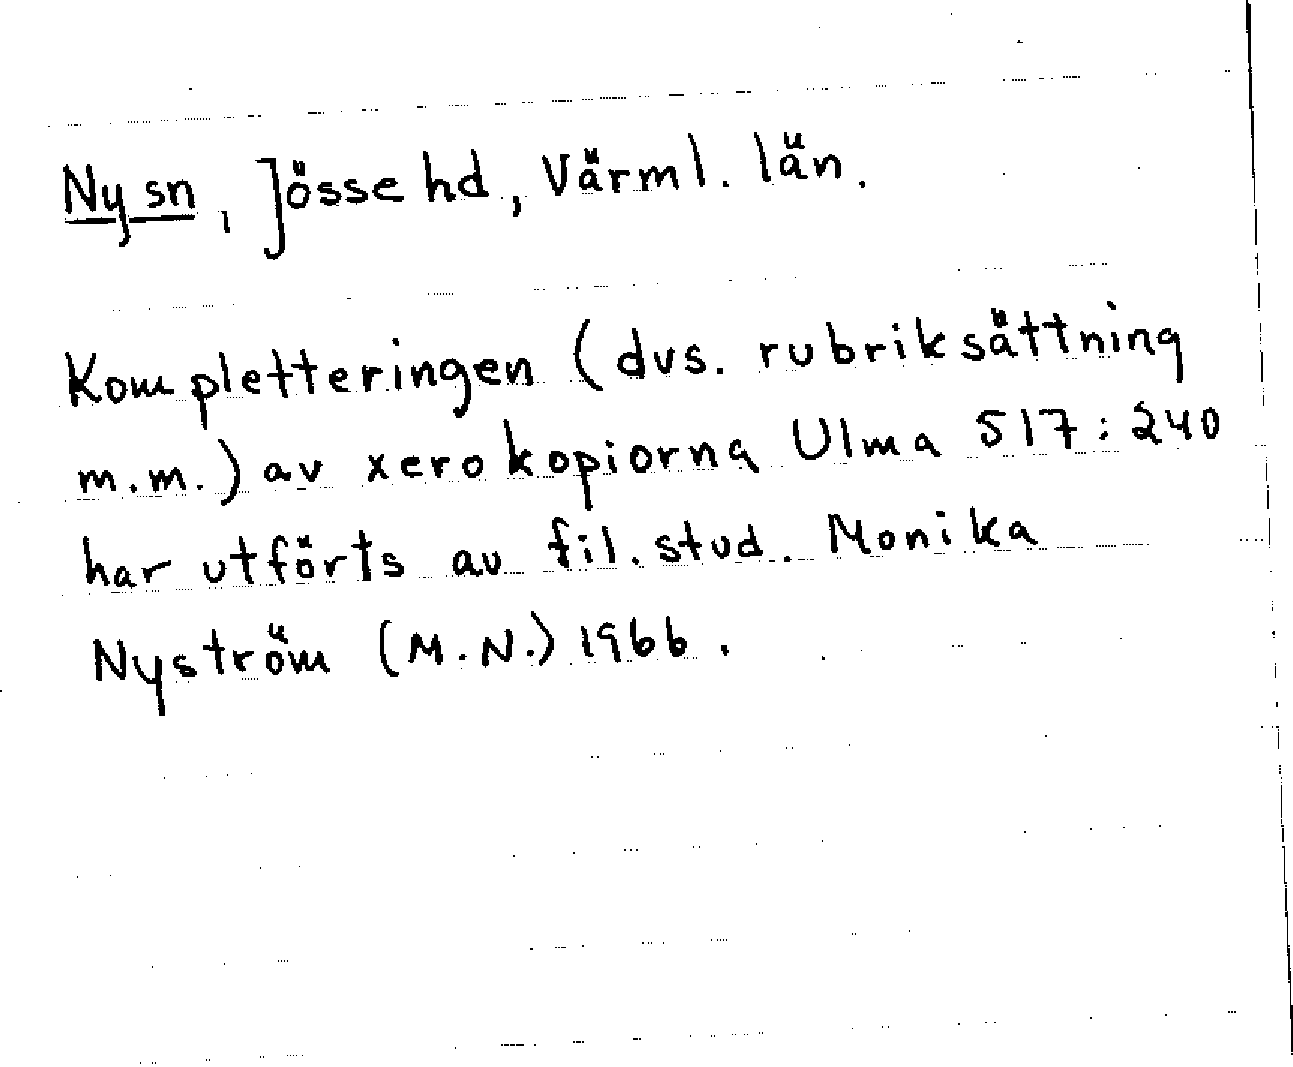 Ny sn, Jösse hd, Värml. län.
Kompletteringen (dvs. rubriksättning
m.m.) av xerokopiorna Ulma 517:240
har utförts av fil. stud. Monika
Nyström (M.N.) 1966.